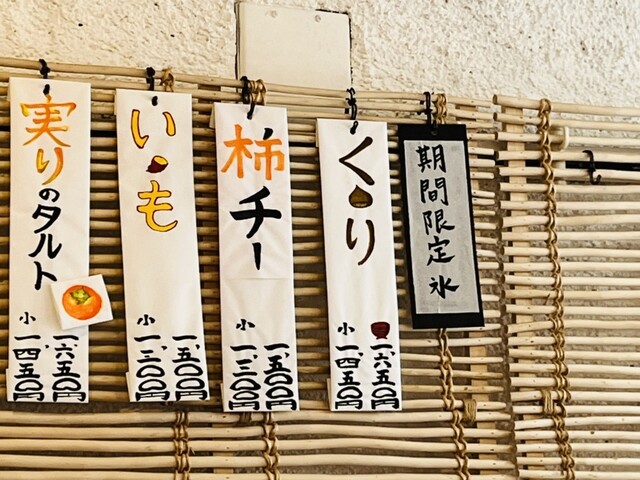 期間限定氷
くり
一、六五〇円
小 一、四五〇円
柿チー
一、五〇〇円
小 一、三〇〇円
いも
一、五〇〇円
小 一、三〇〇円
実りのタルト
一、六五〇円
小 一、四五〇円